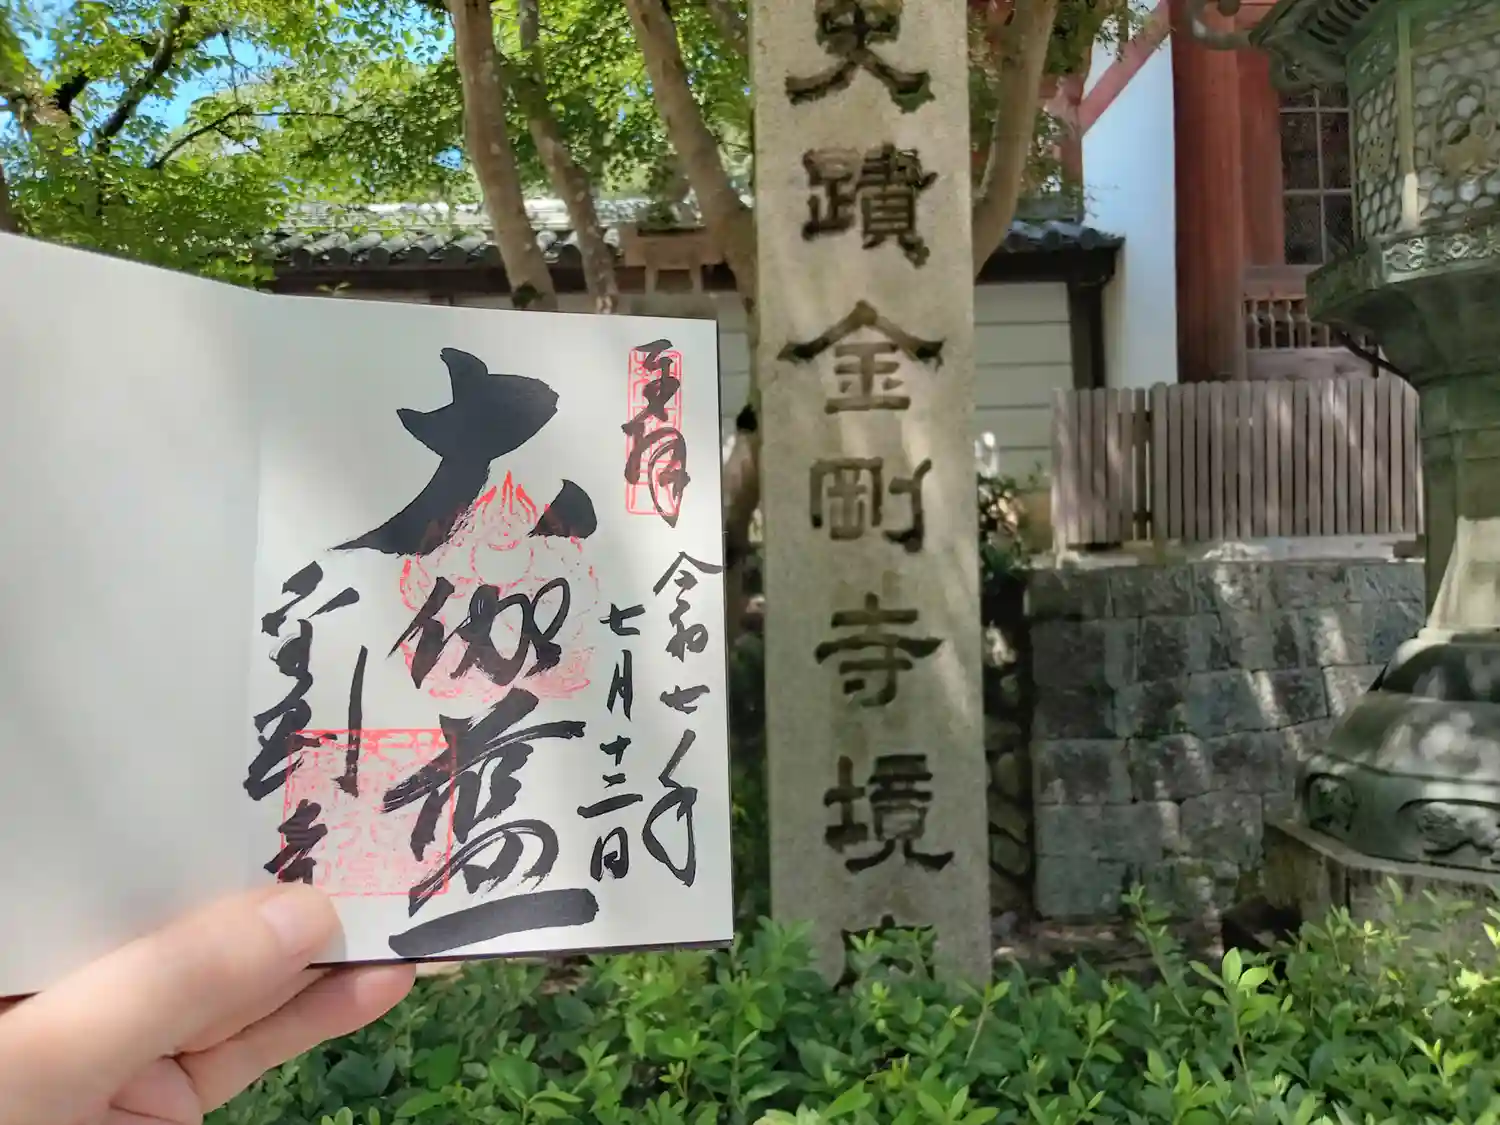 奉拝
令和七年
七月十二日
大伽藍
金剛寺
史蹟金剛寺境内